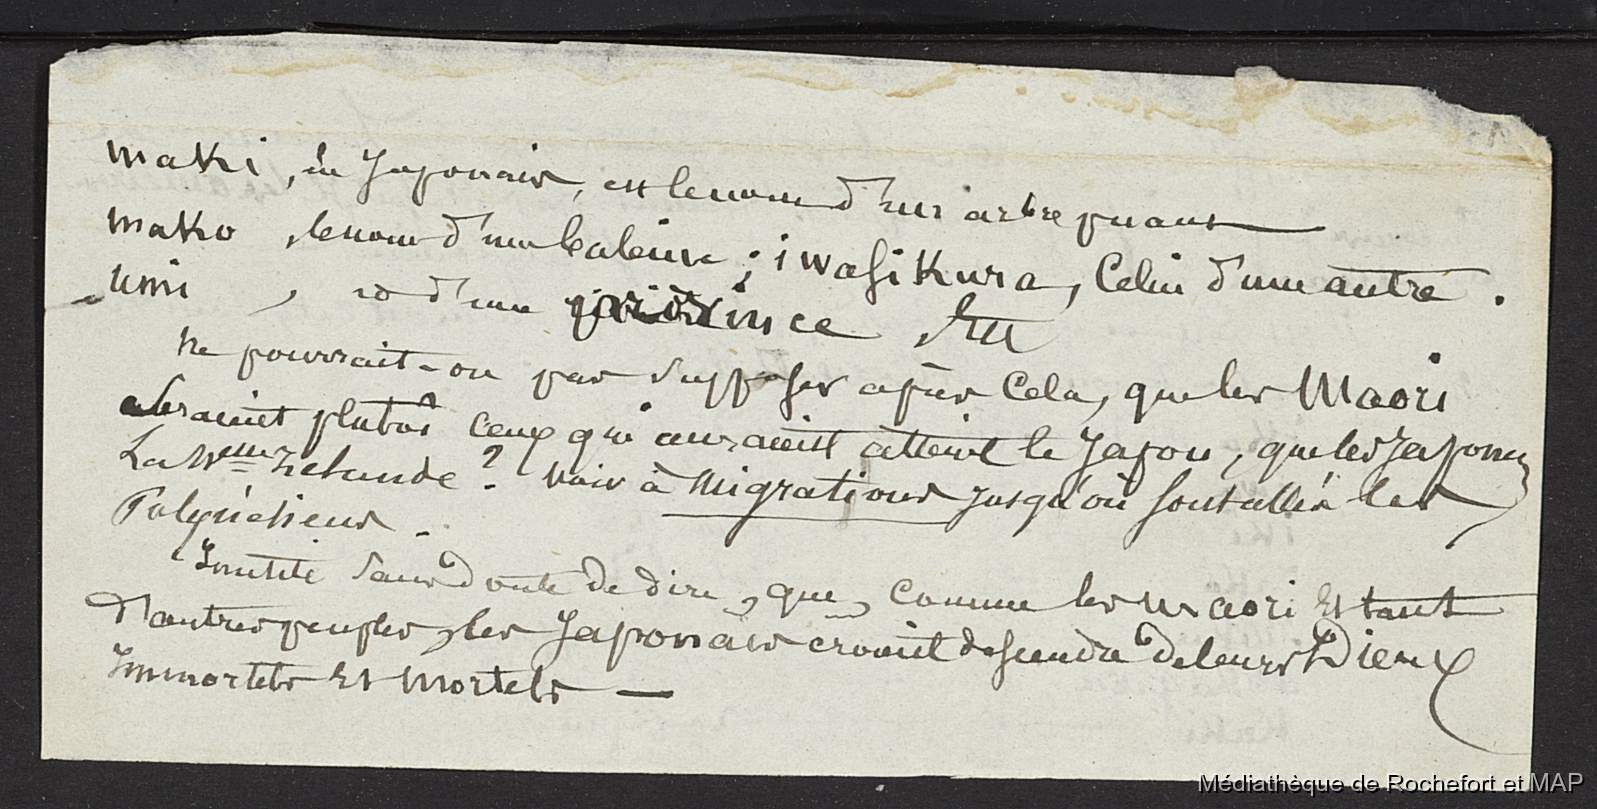 maki, en Japonais, est le nom d'un arbre
mako, le nom d'une baleine ; iwasikura, celui d'une autre.
umi, id d'une province &tc
Ne pourrait-on pas supposer après cela, que les Maori
seraient plutôt ceux qui auraient atteint le Japon, que les Japonais
La Nlle Zélande ? Voir à Migrations jusqu'où sont allés les
Polynésiens.
Inutile sans doute de dire, que, comme les Maori et tant
d'autres peuples, les Japonais croient descendre de leurs Dieux
Immortels et Mortels —
Médiathèque de Rochefort et MAP